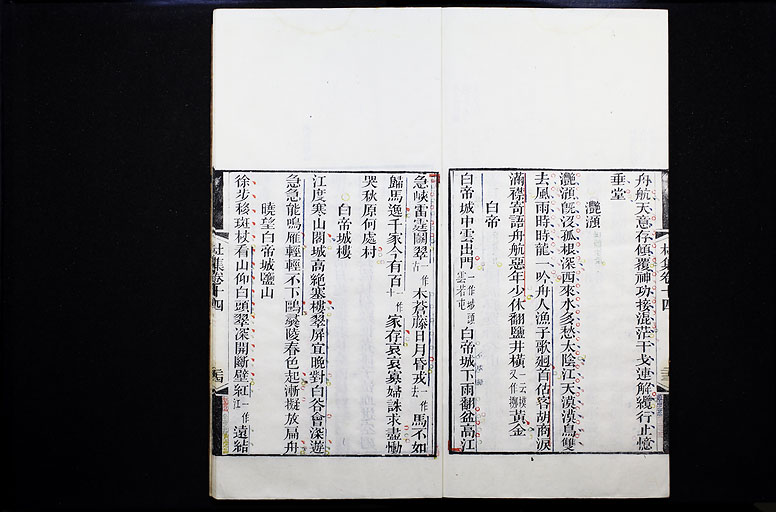 舟航天意存傾覆神功接混茫干戈連解纜行止憶
垂堂
灩澦
灩澦既沒孤根深西來水多愁太陰江天漠漠鳥雙
去風雨時時龍一吟舟人漁子歌廻首估客胡商淚
滿襟寄語舟航惡年少休翻鹽井橫一云摸又作擲黃金
白帝
白帝城中雲出門一作城頭雲若屯白帝城下雨翻盆高江
急峽雷霆鬭翠一作古木蒼藤日月昏戎一作去馬不如
歸馬逸千家今有百一作十家存哀哀寡婦誅求盡慟
哭秋原何處村
白帝城樓
江度寒山閣城高絕塞樓翠屏宜晚對白谷會深遊
急急能鳴雁輕輕不下鷗彛陵春色起漸擬放扁舟
曉望白帝城鹽山
徐步移斑杖看山仰白頭翠深開斷壁紅一作江遠結
杜集卷十四